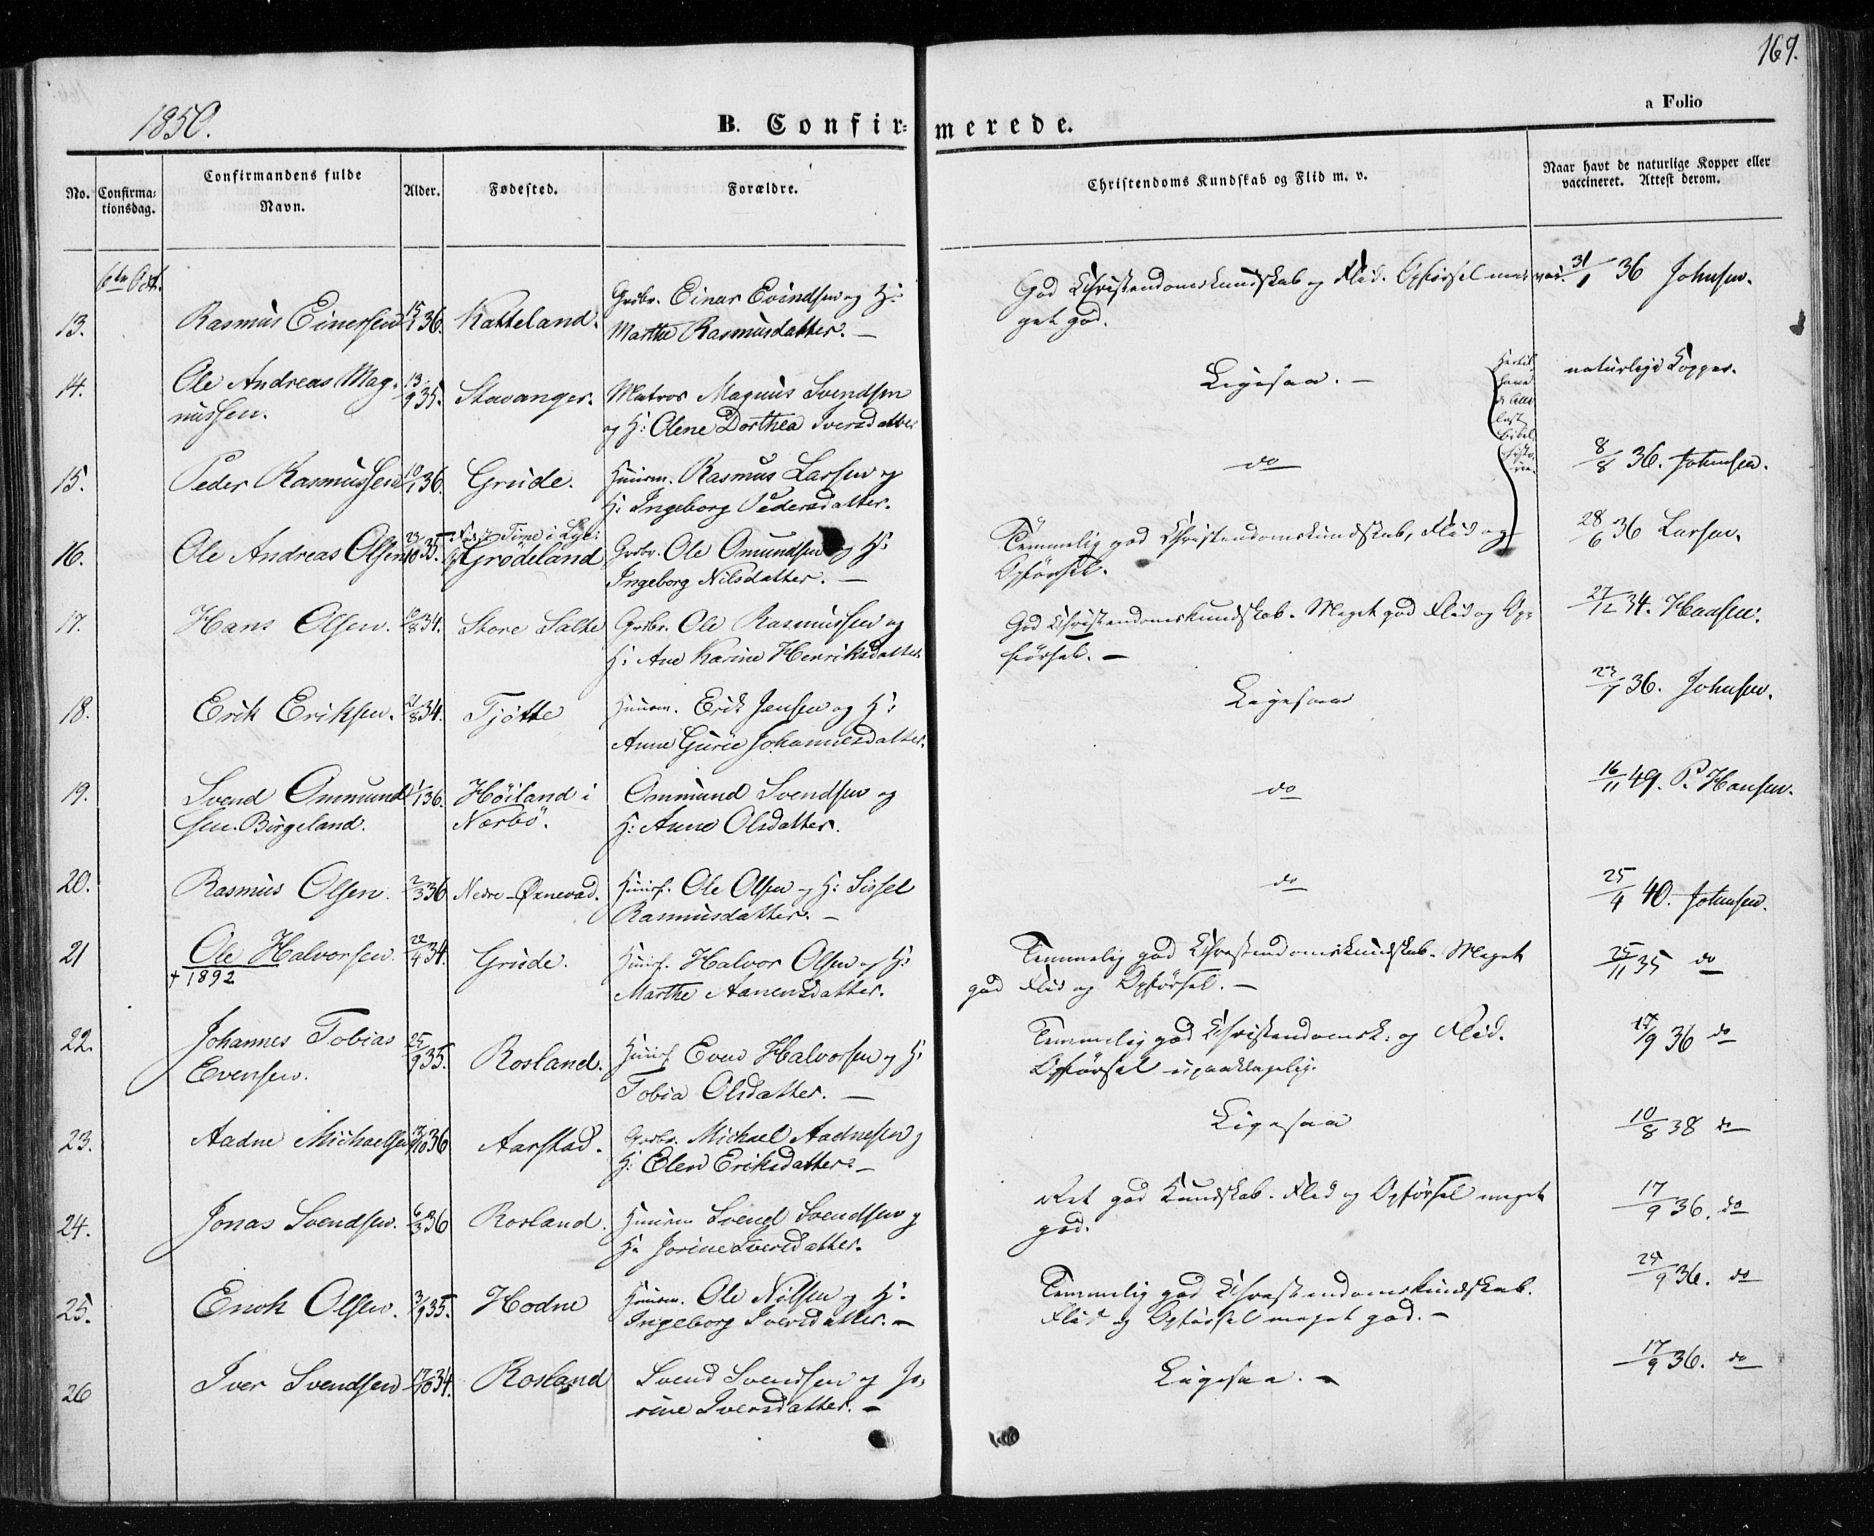 167.
a Folio
1850.
B. Confir-
merede.
No.
Confirma-
tionsdag.
Confirmandens fulde
Navn.
Alder.
Fødested.
Forældre.
Christendoms Kundskab og Flid m. v.
Naar havt de naturlige Kopper eller
vaccineret. Attest derom.
6te Oct.
13. Rasmus Einersen 15/1 36. Katteland. Grdbr. Einar Evindsen og H:
Marthe Rasmusdatter. —
God Christendomskundskab og Flid. Opførsel
get god.
31/1 36 Johnsen.
14. Ole Andreas Mag-
nussen.
13/9 35. Stavanger. Matros Magnus Svendsen
og H: Olene Dorthea Iversdatter
Ligesaa. —
naturlige Kopper.
15. Peder Rasmussen 10/1 36. Grude. Huusm. Rasmus Larsen og
H: Ingeborg Pedersdatter.
do
8/8 36. Johnsen.
16. Ole Andreas Olsen 23/10 35. Grødeland Grdbr. Ole Omundsen og H:
Ingeborg Nilsdatter. —
Temmelig god Christendomskundskab, Flid og
Opførsel.
28/6 36 Larsen.
17. Hans Olsen. 34. Store Salte Grdbr. Ole Rasmussen og
H: Ane Karine Henriksdatter
God Christendomskundskab. Meget god Flid og Op-
førsel. —
27/12 34. Hansen.
18. Erik Eriksen. 34. Tjøtte Huusm. Erik Jensen og H:
Anne Gurie Johannesdatter.
Ligesaa
36. Johnsen.
19. Svend Ommund
sen. Birgeland.
1/1 36. Høiland i
Nærbø.
Ommund Svendsen og
H: Anne Olsdatter.
do
16/11 49. P. Hansen.
20. Rasmus Olsen. 2/3 36 Nedre Øxnevad. Huusf. Ole Olsen og H: Sissel
Rasmusdatter. —
do
25/4 40. Johnsen.
21 Ole Halvorsen. 22/4 34. Grude. Huusf. Halvor Olsen og H:
† 1892
Marthe Aanensdatter.
Temmelig god Christendomskundskab. Meget
god Flid og Opførsel. —
25/11 35 do
22. Johannes Tobias
Evensen.
25/9 35. Rosland. Huusf. Even Halvorsen og H:
Tobia Olsdatter. —
Temmelig god Christendomsk: og Flid.
Opførsel upaaklagelig.
17/9 36 do
23. Aadne Michaelsen 36 Aarstad. Grdbr. Michael Aadnesen og
H: Elen Eriksdatter. —
Ligesaa
10/8 38 do
24. Jonas Svendsen. 6/3 36 Rosland. Huusm Svend Svendsen og
H: Jorine Iversdatter.
Ret god Kundskab. Flid og Opførsel meget
god.
17/9 36. do
25. Enok Olsen. 3/9 35. Hodne Huusm. Ole Nilsen og H:
Ingeborg Iversdatter. —
Temmelig god Christendomskundskab.
Flid og Opførsel meget god. —
24/9 36. do
26 Iver Svendsen 17/10 34. Rosland Svend Svendsen og Jo-
rine Iversdatter. —
Ligesaa. —
17/9 36. do